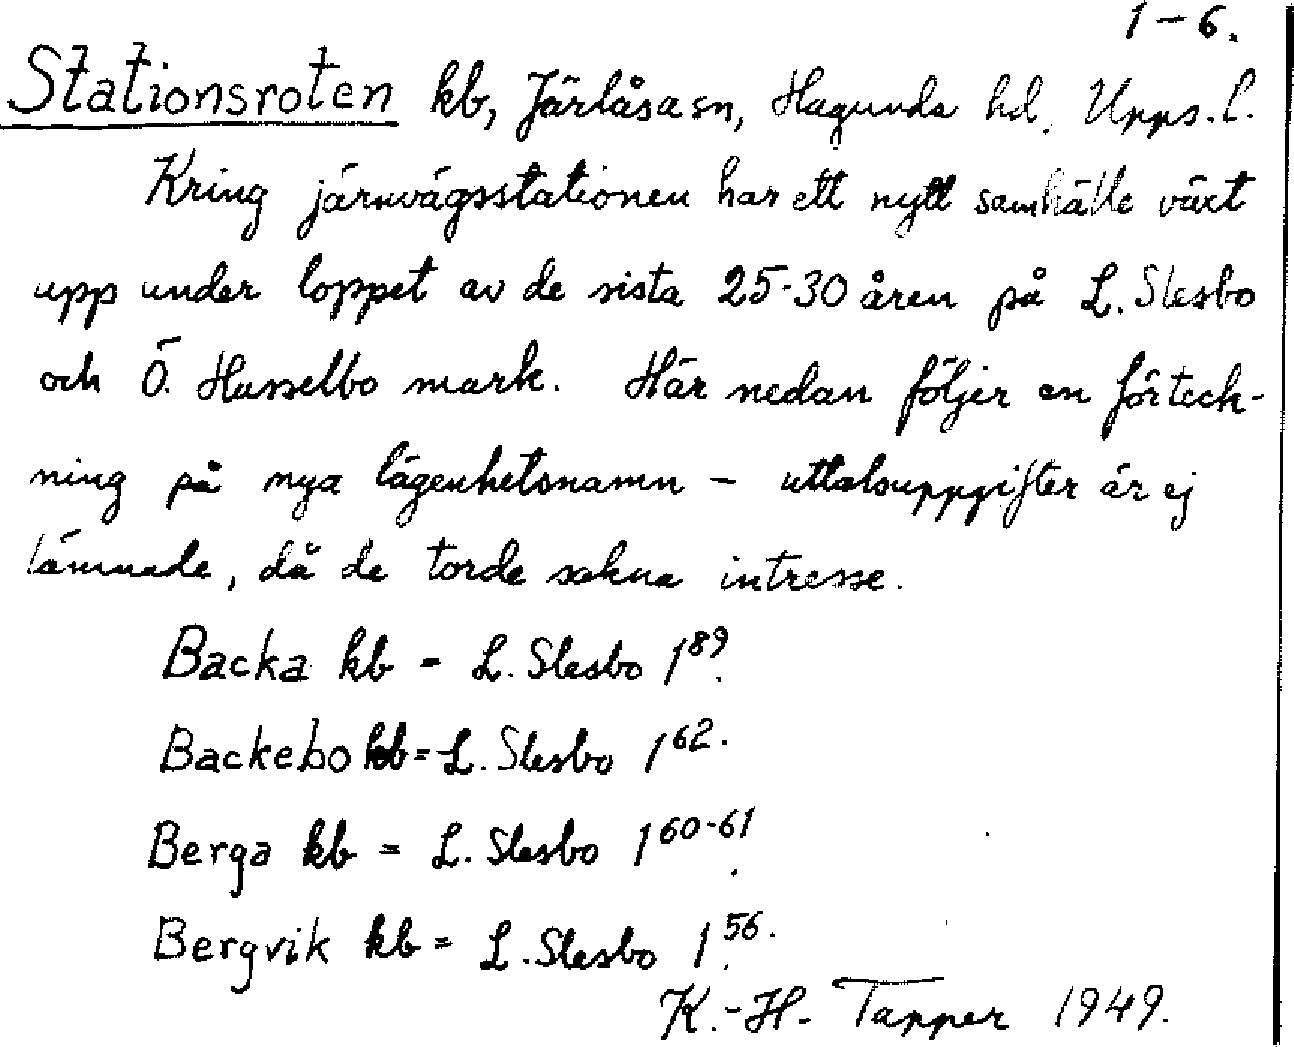 1-6.
Stationsroten kb, Järlåsa sn, Hagunda hd, Upps. l.
Kring järnvägsstationen har ett nytt samhälle växt
upp under loppet av de sista 25-30 åren på L. Slesbo
och Ö. Husselbo mark. Här nedan följer en förteck-
ning på nya lägenhetsnamn - uttalsuppgifter är ej
lämnade, då de torde sakna intresse.
Backa kb = L. Slesbo 1⁸⁹.
Backebo kb = L. Slesbo 1⁶².
Berga kb = L. Slesbo 1⁶⁰⁻⁶¹.
Bergvik kb = L. Slesbo 1⁵⁶.
K.-H. Tapper 1949.